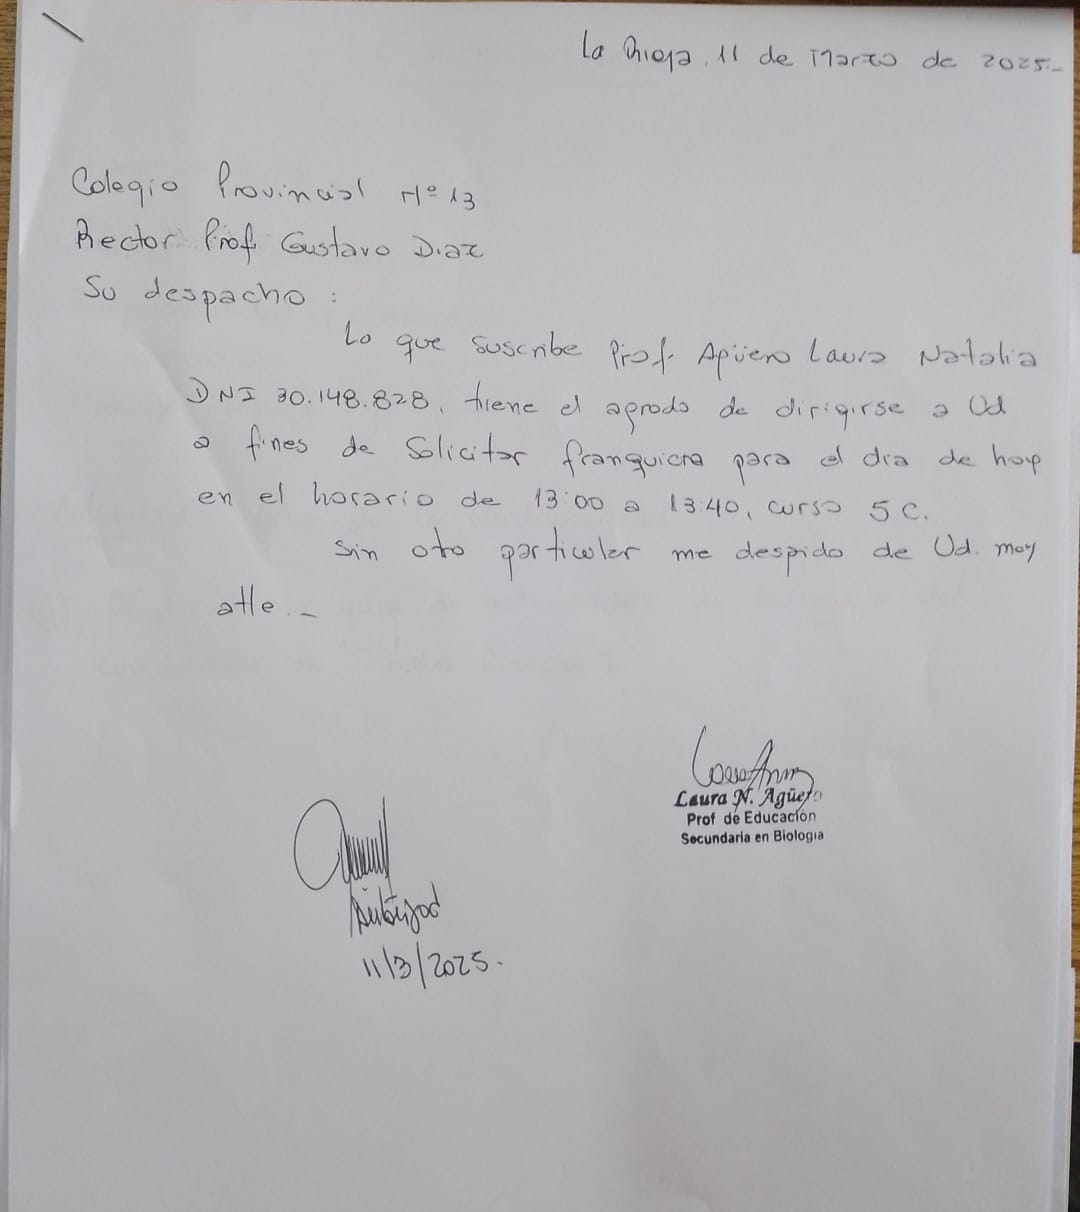 La Rioja, 11 de Marzo de 2025.-
Colegio Provincial Nº 13
Rector Prof Gustavo Diaz
Su despacho :
Lo que suscribe Prof. Agüero Laura Natalia
DNI 30.148.828, tiene el agrado de dirigirse a Ud
a fines de Solicitar franquicia para el dia de hoy
en el horario de 13:00 a 13:40, curso 5 C.
Sin oto particular me despido de Ud. moy
atte.-
Laura N. Agüero
Prof de Educación
Secundaria en Biologia
11/3/2025.